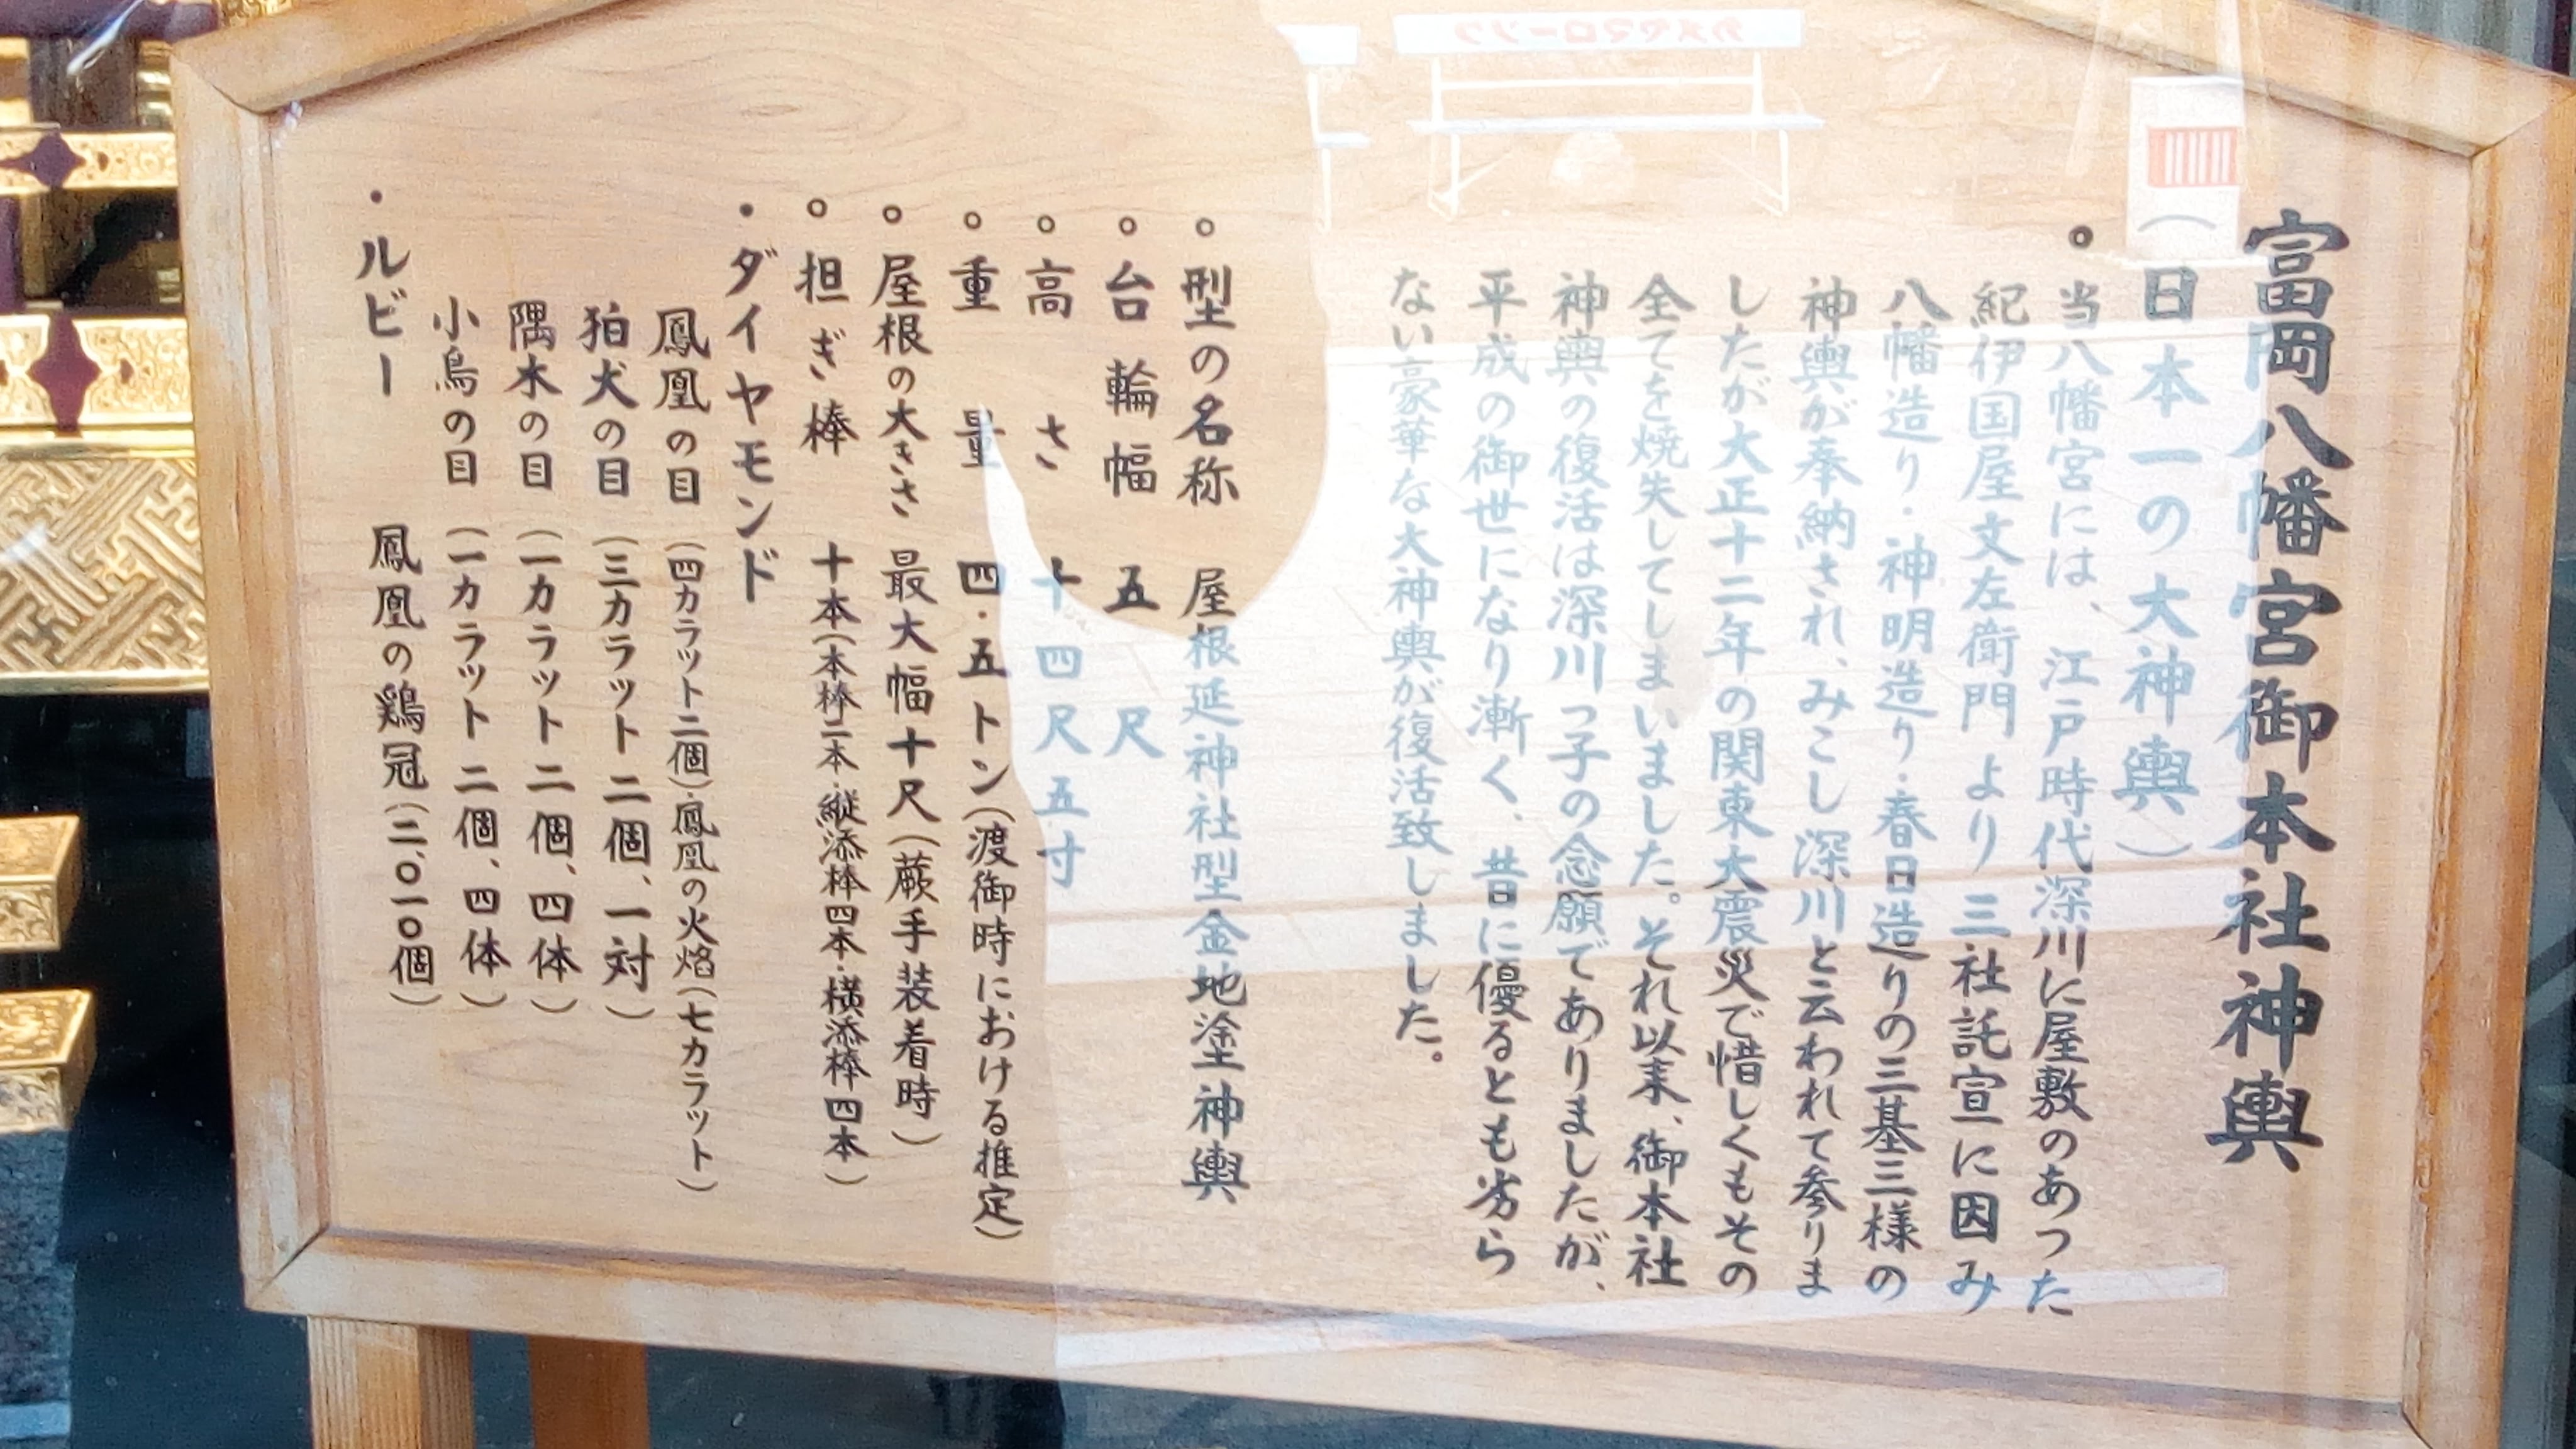 富岡八幡宮御本社神輿
（日本一の大神輿）
• 当八幡宮には、江戸時代深川に屋敷のあった
紀伊国屋文左衛門より三社託宣に因み
八幡造り・神明造り・春日造りの三基三様の
神輿が奉納され、みこし深川と云われて参りま
したが大正十二年の関東大震災で惜しくもその
全てを焼失してしまいました。それ以来、御本社
神輿の復活は深川っ子の念願でありましたが、
平成の御世になり漸く、昔に優るとも劣ら
ない豪華な大神輿が復活致しました。
○型の名称 屋根延神社型金地塗神輿
○台輪幅 五尺
○高さ 十四尺五寸
○重量 四・五トン（渡御時における推定）
○屋根の大きさ 最大幅十尺（蕨手装着時）
○担ぎ棒 十本（本棒二本・縦添棒四本・横添棒四本）
・ダイヤモンド
鳳凰の目（四カラット二個）・鳳凰の火焰（七カラット）
狛犬の目（三カラット二個、一対）
隅木の目（一カラット二個、四体）
小鳥の目（一カラット二個、四体）
・ルビー 鳳凰の鶏冠（二、〇一〇個）
カメヤマローソク